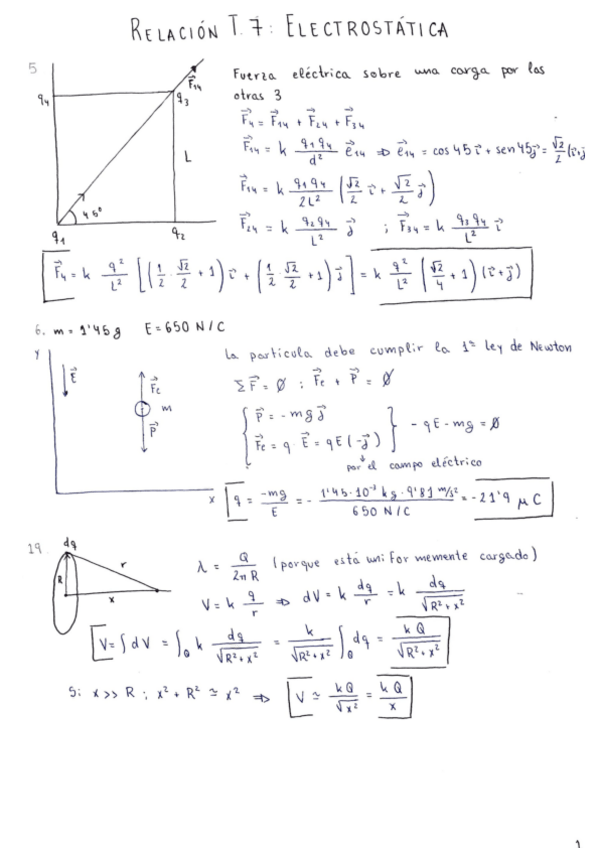 RELACIÓN T.7: ELECTROSTÁTICA
5
F⃗14
q4
q3
L
45º
q1
q2
Fuerza eléctrica sobre una carga por las
otras 3
F⃗4 = F⃗14 + F⃗24 + F⃗34
F⃗14 = k q1q4/d² e⃗14 ⇒ e⃗14 = cos 45 i⃗ + sen 45 j⃗ = √2/2 (i⃗+j
F⃗14 = k q1q4/2L² (√2/2 i⃗ + √2/2 j⃗)
F⃗24 = k q2q4/L² j⃗ ; F⃗34 = k q3q4/L² i⃗
F⃗4 = k q²/L² [(1/2 · √2/2 + 1) i⃗ + (1/2 · √2/2 + 1) j⃗] = k q²/L² (√2/4 + 1) (i⃗+j⃗)
6. m = 1'45 g E = 650 N/C
Y
E⃗
F⃗e
m
P⃗
x
La partícula debe cumplir la 1ª ley de Newton
ΣF⃗ = Ø ; F⃗e + P⃗ = Ø
{ P⃗ = - mg j⃗
F⃗e = q E⃗ = qE(-j⃗) } - qE - mg = Ø
por el campo eléctrico
q = -mg/E = - 1'45·10⁻³ kg · 9'81 m/s²/650 N/C = -21'9 μC
19
dq
R
r
x
λ = Q/2πR (porque está uniformemente cargado)
V = k q/r ⇒ dV = k dq/r = k dq/√R²+x²
V = ∫dV = ∫Q k dq/√R²+x² = k/√R²+x² ∫Q dq = kQ/√R²+x²
Si x >> R ; x² + R² ≃ x² ⇒ V ≃ kQ/√x² = kQ/x
1